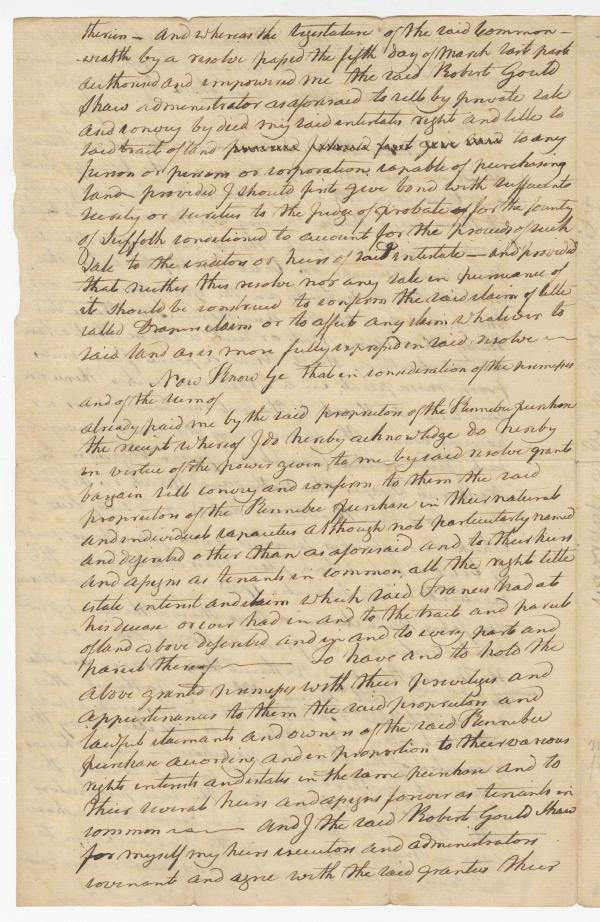 therein — And whereas the Legislature of the said Common-
-wealth by a resolve passed the fifth day of March last past
authorised and impowered me the said Robert Gould
Shaw administrator as aforesaid to sell by private sale
and convey by deed my said intestates right and title to
said tract of land to any
person or persons or corporation capable of purchasing
land provided I should first give bond with sufficient
surety or sureties to the Judge of probate for the County
of Suffolk conditioned to account for the proceeds of such
Sale to the creditors or heirs of said intestate — and provided
that neither this resolve nor any sale in pursuance of
it should be construed to confirm the said claim of title
called Drowns claim or to affect any claim whatever to
said land as is more fully expressed in said resolve —
Now Know ye that in consideration of the premises
and of the sum of
already paid me by the said proprietors of the Kennebec purchase
the receipt whereof I do hereby acknowledge do hereby
in virtue of the power given to me by said resolve grant
bargain sell convey and confirm to them the said
proprietors of the Kennebec purchase in their natural
and individual capacities although not particularly named
and described other than as aforesaid and to their heirs
and assigns as tenants in common all the right title
estate interest and claim which said Francis had at
his decease or ever had in and to the tract and parcel
of land above described and in and to every part and
parcel thereof — To have and to hold the
above granted premises with their privileges and
appurtenances to them the said proprietors and
lawful claimants and owners of the said Kennebec
purchase according and in proportion to their various
rights interests and estates in the same purchase and to
their several heirs and assigns forever as tenants in
common — And I the said Robert Gould Shaw
for myself my heirs executors and administrators
covenant and agree with the said grantees their